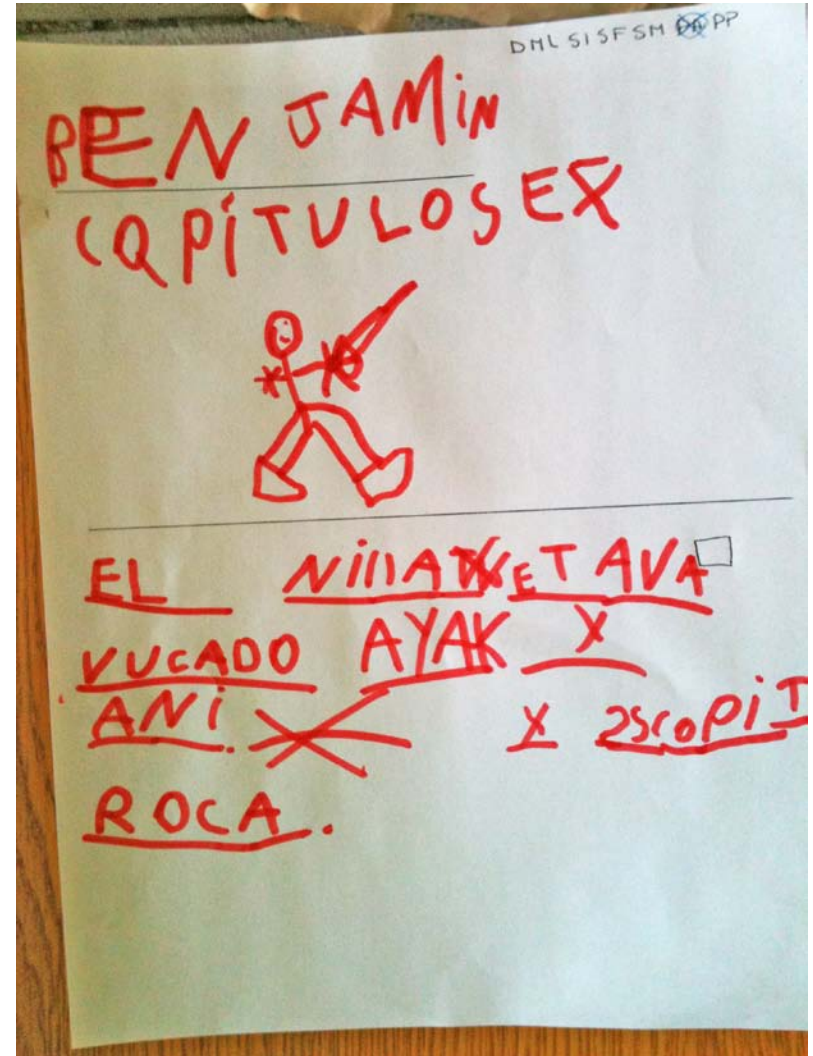 DML SISFSM PP
BENJAMIN
CAPÍTULO SEX
EL NIÑA ETAVA
VUCADO AYAK X
ANI. X 2SCOPIT
ROCA.